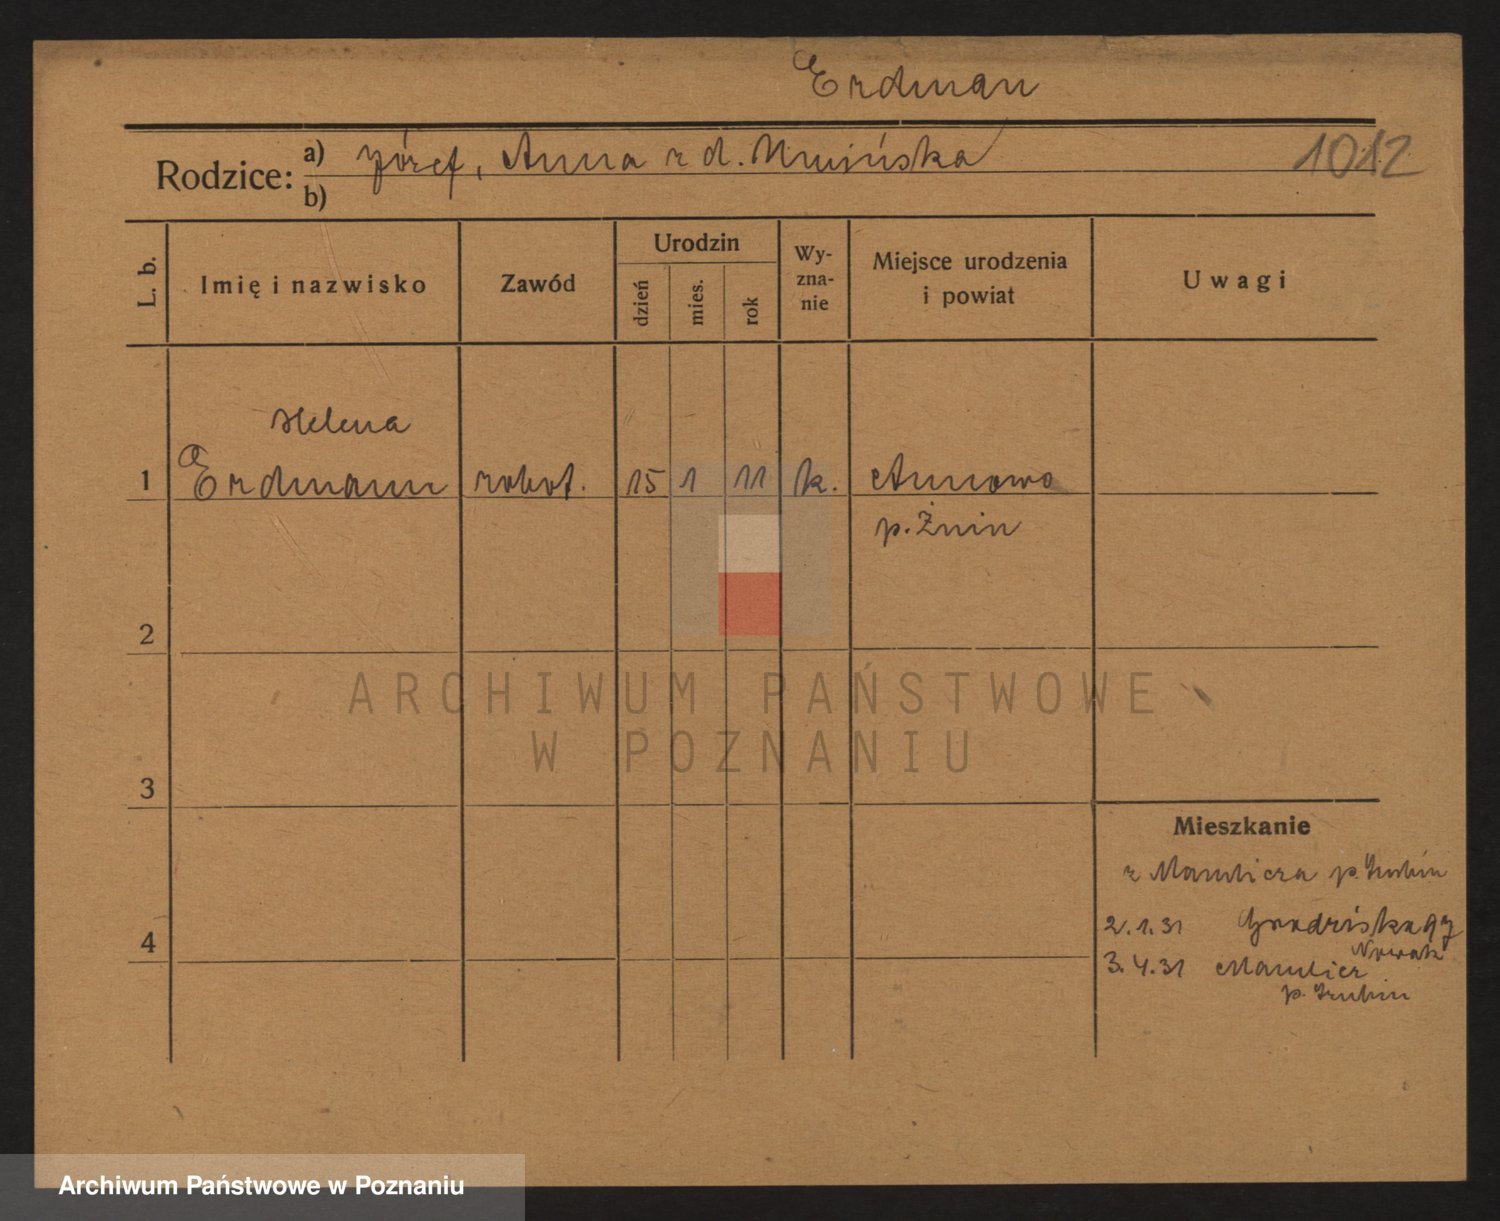 Erdman
Rodzice: a) Józef, Anna z d. 1012
b)
L. b. Imię i nazwisko Zawód Urodzin dzień mies. rok Wy-zna-nie Miejsce urodzenia i powiat Uwagi
Helena
1 Erdmann robot. 15 1 11 k. Annowo
p. Żnin
2
3
4
Mieszkanie
z p.
2.1.31 97
Nowak
3.4.31
p.
ARCHIWUM PAŃSTWOWE
W POZNANIU
Archiwum Państwowe w Poznaniu